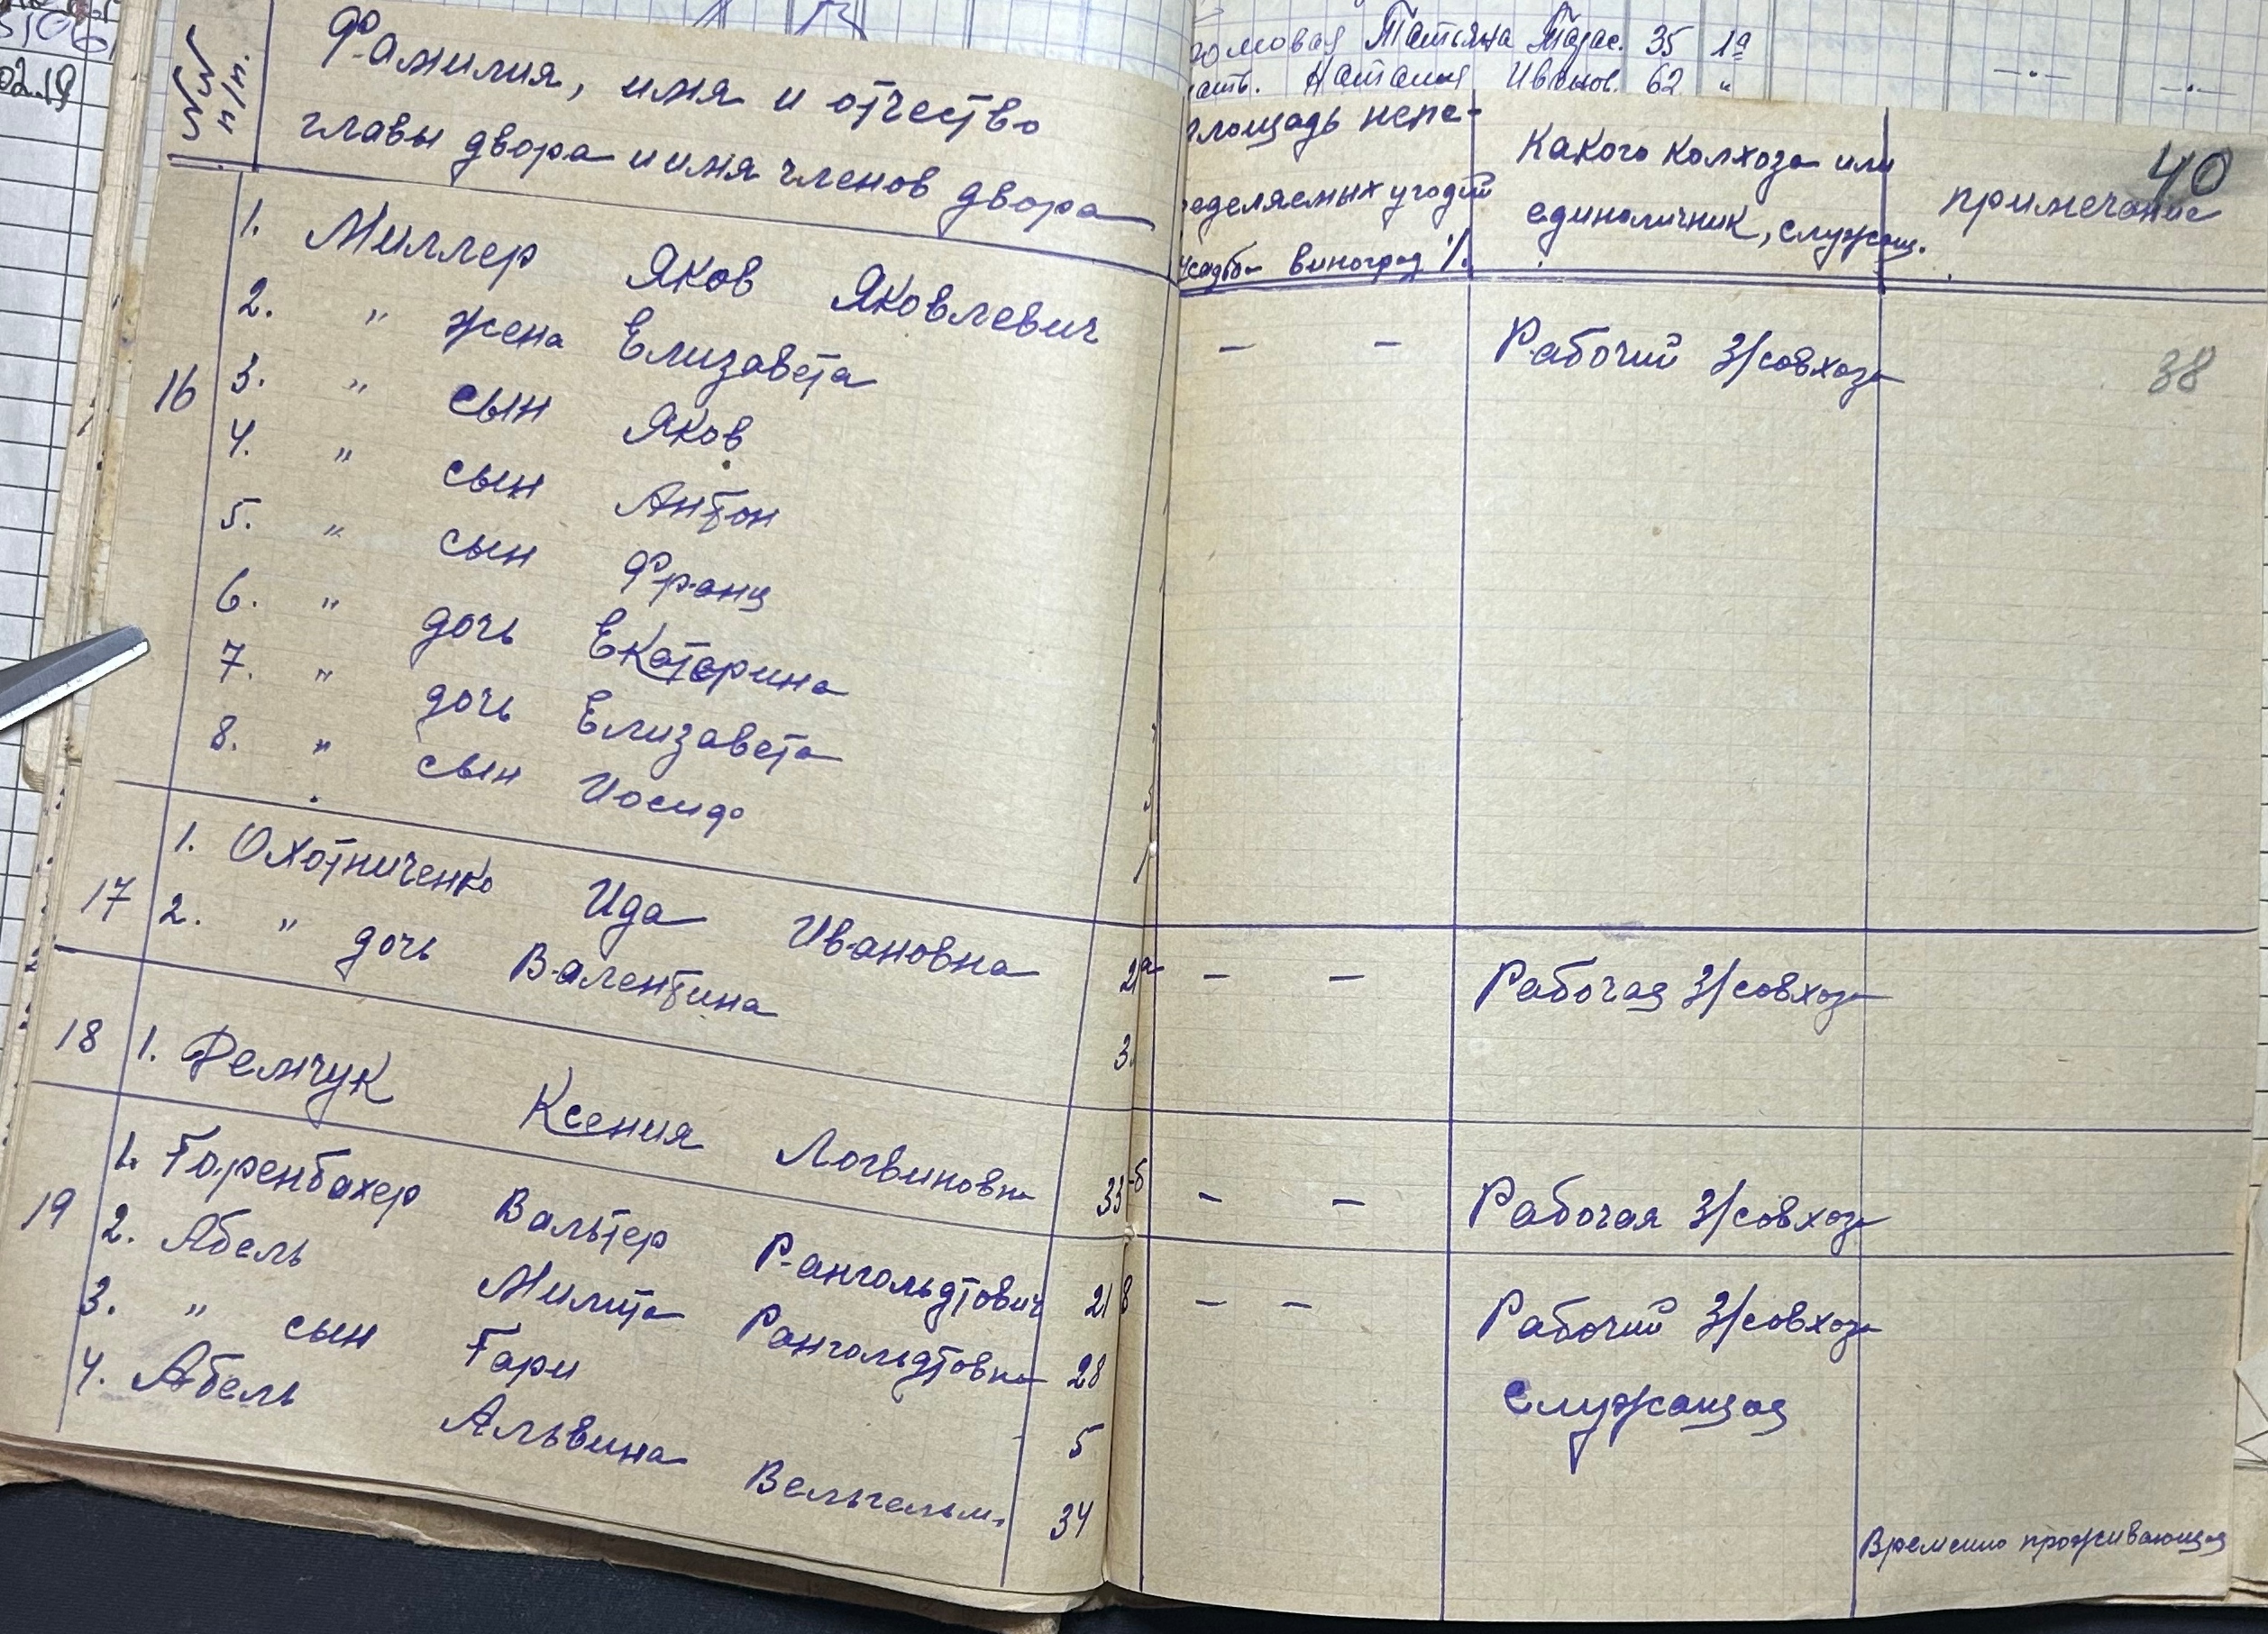 02.19
№№ п/п.
Фамилия, имя и отчество
главы двора и имя членов двора
16
1. Миллер Яков Яковлевич
2. " жена Елизавета
3. " сын Яков
4. " сын Антон
5. " сын Франц
6. " дочь Екатерина
7. " дочь Елизавета
8. " сын Иосиф
17
1. Охотниченко Ида Ивановна
2. " дочь Валентина
18
1. Демчук Ксения Логвиновна 33
19
1. Горенбахер Вальтер Рангольдтович 21
2. Абель Милита Рангольдтовна 28
3. " сын Гари 5
4. Абель Альвина Вельгельм. 34
Татьяна Тарас. 35 19
Наталия Иванов. 62 "
площадь непе-
ределяемых угодий
усадьба виноград %
Какого колхоза или
единоличник, служащ.
примечание
40
38
- - Рабочий З/совхоза
- - Рабочая З/совхоза
- - Рабочая З/совхоза
- - Рабочий З/совхоза
Служащая
Временно проживающая